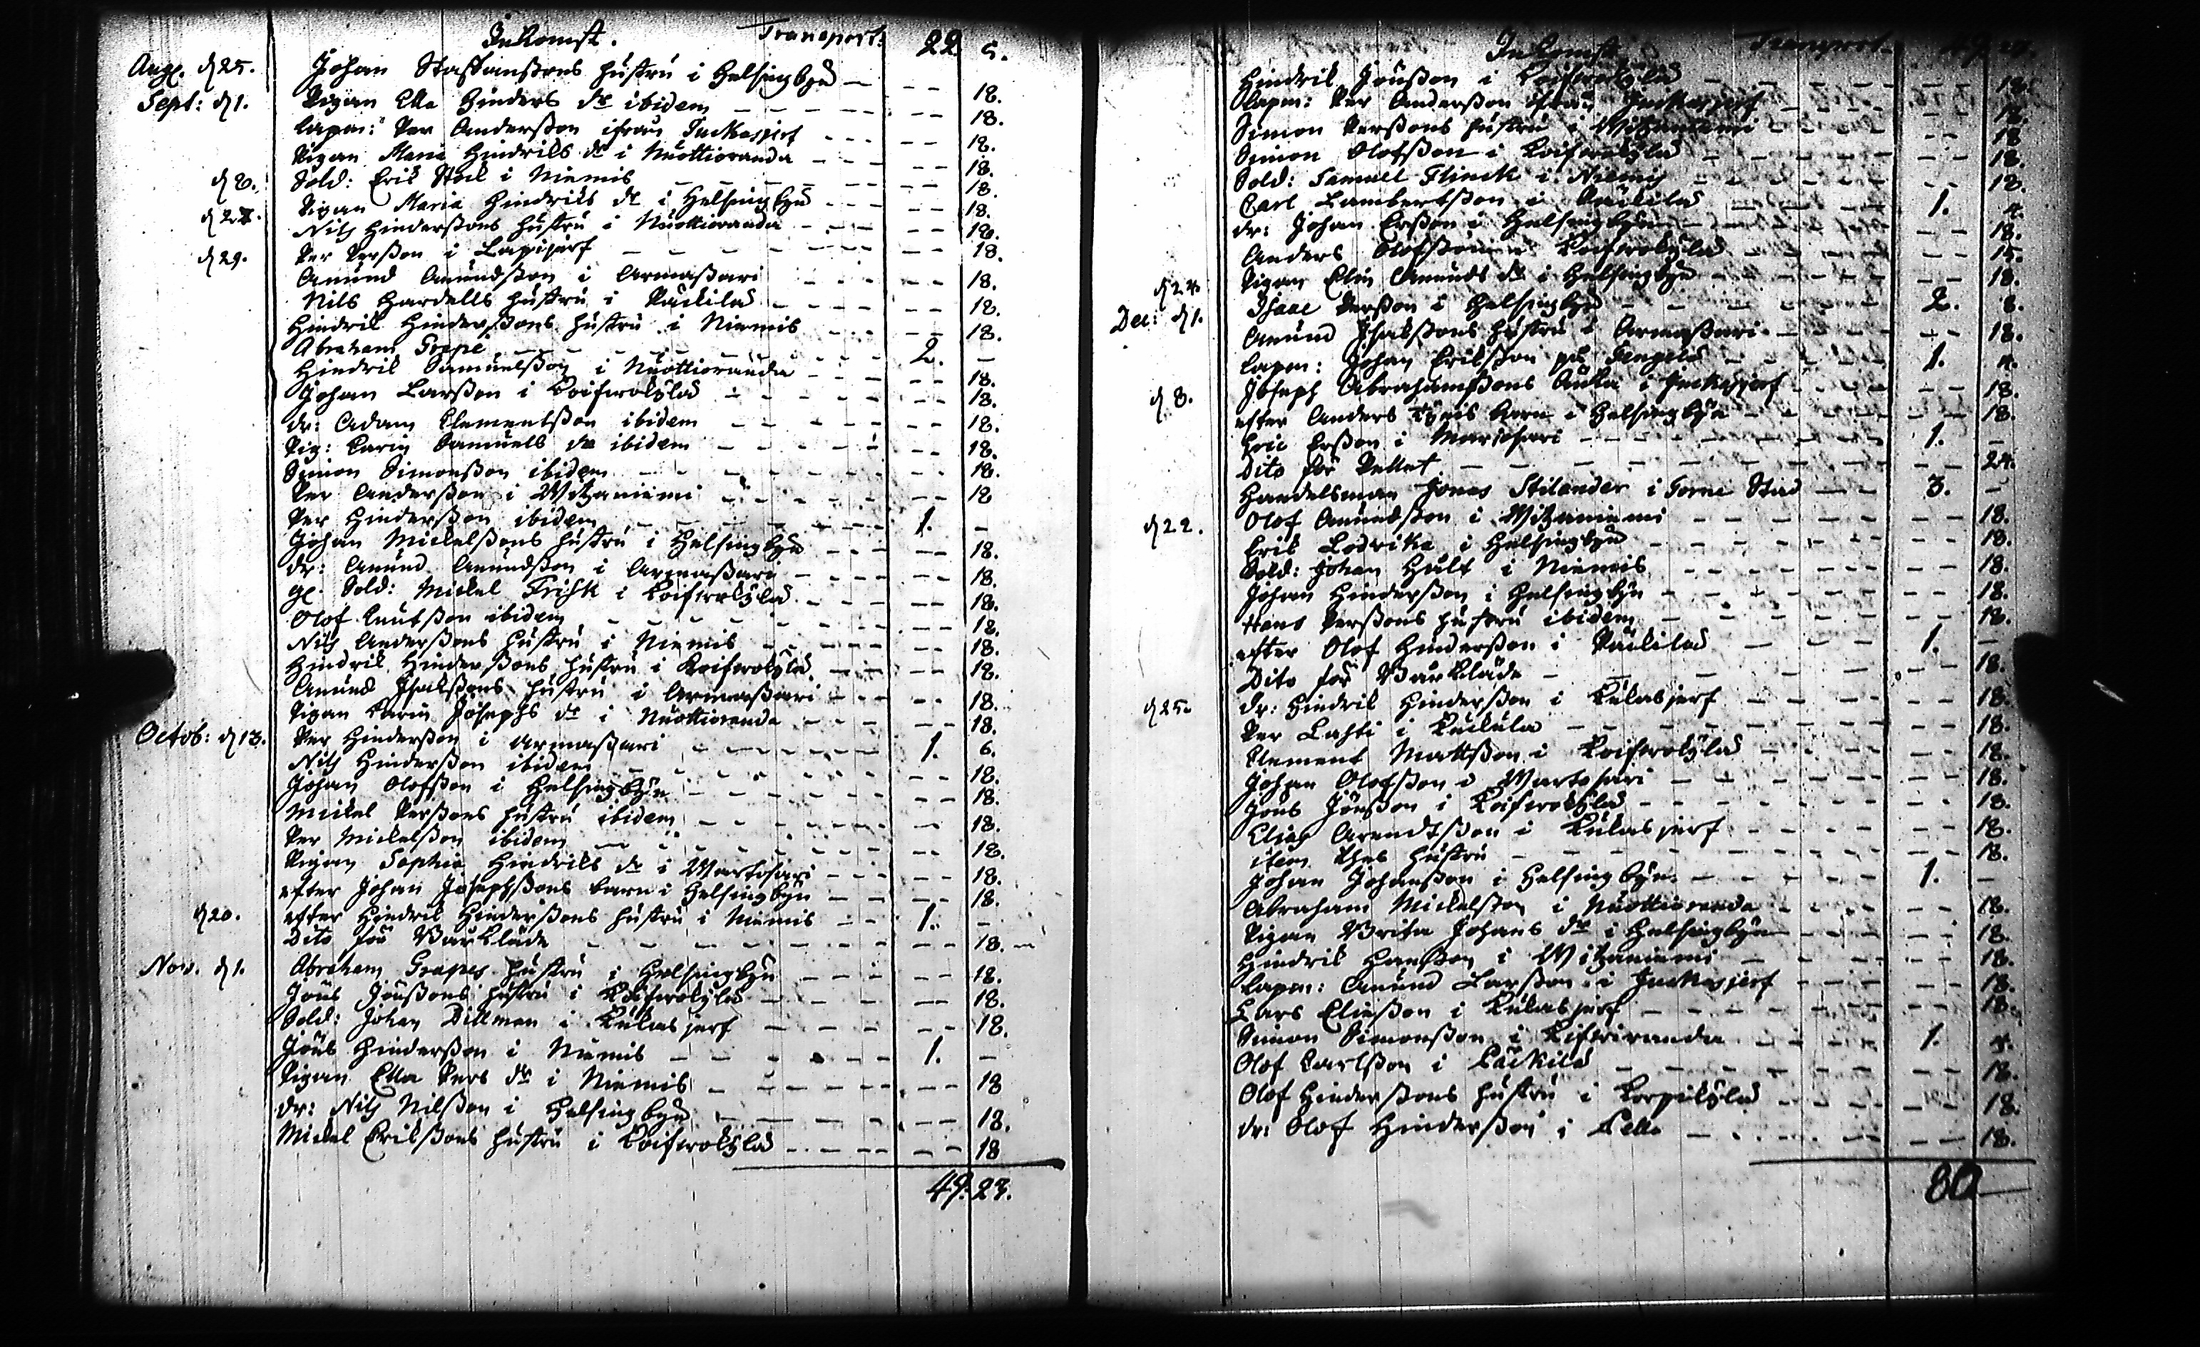 Inkomst. Transport: 22. 5.
Aug. d 25. Johan Staffanßons hustru i Helsingbyn - - - 18.
Sept: d 1. Pigan Ella Hinders dr ibidem - - - 18.
Lapm: Per Anderßon ifrån Juckasjerf - - - 18.
Pigan Maria Hindriks dr i Nuottioranda - - - 18.
d 8. Sold: Erik Stock i Niemis - - - 18.
Pigan Maria Hindriks dr i Helsingbyn - - - 18.
Nils Hinderßons hustru i Nuottioranda - - - 18.
d 29. Per Perßon i Lapijerf - - - 18.
Amund Amundßon i Armaßari - - - 18.
Nils Hardells hustru i Päckilä - - - 18.
Hindrik Hinderßons hustru i Niemis - - - 18.
Abraham Grape - - - 2. -
Hindrik Samuelßon i Nuottioranda - - - 18.
Johan Larßon i Koifwokylä - - - 18.
dr: Adam Clementßon ibidem - - - 18.
Pig: Carin Samuels dr ibidem - - - 18.
Simon Simonßon ibidem - - - 18.
Per Anderßon i Witzaniemi - - - 18
Per Hinderßon ibidem - - - 1. -
Johan Mickelßons hustru i Helsingbyn - - - 18.
dr: Amund Amundßon i Armaßari - - - 18.
gl. Sold: Mickel Frisk i Koifwokylä - - - 18.
Olof Knutßon ibidem - - - 18.
Nils Anderßons hustru i Niemis - - - 18.
Hindrik Hinderßons hustru i Koifwokylä - - - 18.
Amund Isakßons hustru i Armaßari - - - 18.
Pigan Karin Josephs dr i Nuottioranda - - - 18.
Octob: d 13. Per Hinderßon i Armaßari - - - 1. 6.
Nils Hinderßon ibidem - - - 18.
Johan Olofßon i Helsingbyn - - - 18.
Mickel Perßons hustru ibidem - - - 18.
Per Mickelßon ibidem - - - 18.
Pigan Sophia Hindriks dr i Martosari - - - 18.
efter Johan Josephßons barn i Helsingbyn - - - 18.
d 20. efter Hindrik Hinderßons hustru i Niemis - - 1. -
Dito för Bårkläde - - - 18.
Nov. d 1. Abraham Grapes hustru i Helsingbyn - - - 18.
Jöns Jönßons hustru i Koifwokylä - - - 18.
Sold: Johan Dillman i Kulasjerf - - - 18.
Jöns Hinderßon i Niemis - - - 1. -
Pigan Ella Pers dr i Niemis - - - 18
dr: Nils Nilßon i Helsingbyn - - - 18.
Mickel Erikßons hustru i Koifwokylä - - - 18
49. 23.
Inkomst Transport.
Hindrik Jönßon i Koifwokylä - - - 18.
Lapm: Per Anderßon ifrån Juckasjerf - - - 18.
Simon Perßons hustru i Witzaniemi - - - 18
Simon Olofßon i Koifwokylä - - - 18.
Sold: Samuel Flinck i Niemis - - - 18.
Carl Lambertßon i Päckilä - - - 1. 4.
dr: Johan Erßon i Helsingbyn - - - 18.
Anders Olofßon i Koifwokylä - - - 15.
d 24. Pigan Elin Amunds dr i Helsingbyn - - - 18.
Dec: d 1. Isaac Perßon i Helsingbyn - - - 2. 8.
Amund Isakßons hustru i Armaßari - - - 18.
Lapm: Johan Erikßon på Tengelä - - - 1. 4.
d 8. Joseph Abrahamßons Enka i Juckasjerf - - - 18.
efter Anders barn i Helsingbyn - - - 18.
Eric Erßon i Martosari - - - 1. -
Dito för Pellet - - - 24.
Handelsman Jonas Stilander i Torne Stad - - 3. -
d 22. Olof Amundßon i Witzaniemi - - - 18.
Erik Lodwika i Helsingbyn - - - 18.
Sold: Johan Hult i Niemis - - - 18.
Johan Hinderßon i Helsingbyn - - - 18.
Hans Perßons hustru ibidem - - - 18.
efter Olof Hinderßon i Päckilä - - - 1. -
Dito för Bårkläde - - - 18.
d 25. dr: Hindrik Hinderßon i Kulasjerf - - - 18.
Per Lahti i Kuckula - - - 18.
Clement Mattßon i Koifwokylä - - - 18.
Johan Olofßon i Martosari - - - 18.
Jöns Jönßon i Koifwokylä - - - 18.
Elias Arendtßon i Kulasjerf - - - 18.
item thes hustru - - - 18.
Johan Johanßon i Helsingbyn - - - 1. -
Abraham Mickelßon i Nuottioranda - - - 18.
Pigan Brita Johans dr i Helsingbyn - - - 18.
Hindrik Hanßon i Witzaniemi - - - 18.
Lapm: Amund Larßon i Juckasjerf - - - 18.
Lars Eließon i Kulasjerf - - - 18.
Simon Simonßon i Koifwiranda - - - 1. 4.
Olof Carlßon i Päckilä - - - 18.
Olof Hinderßons hustru i Korpikylä - - - 18.
dr: Olof Hinderßon i Pello - - - 18.
80 -